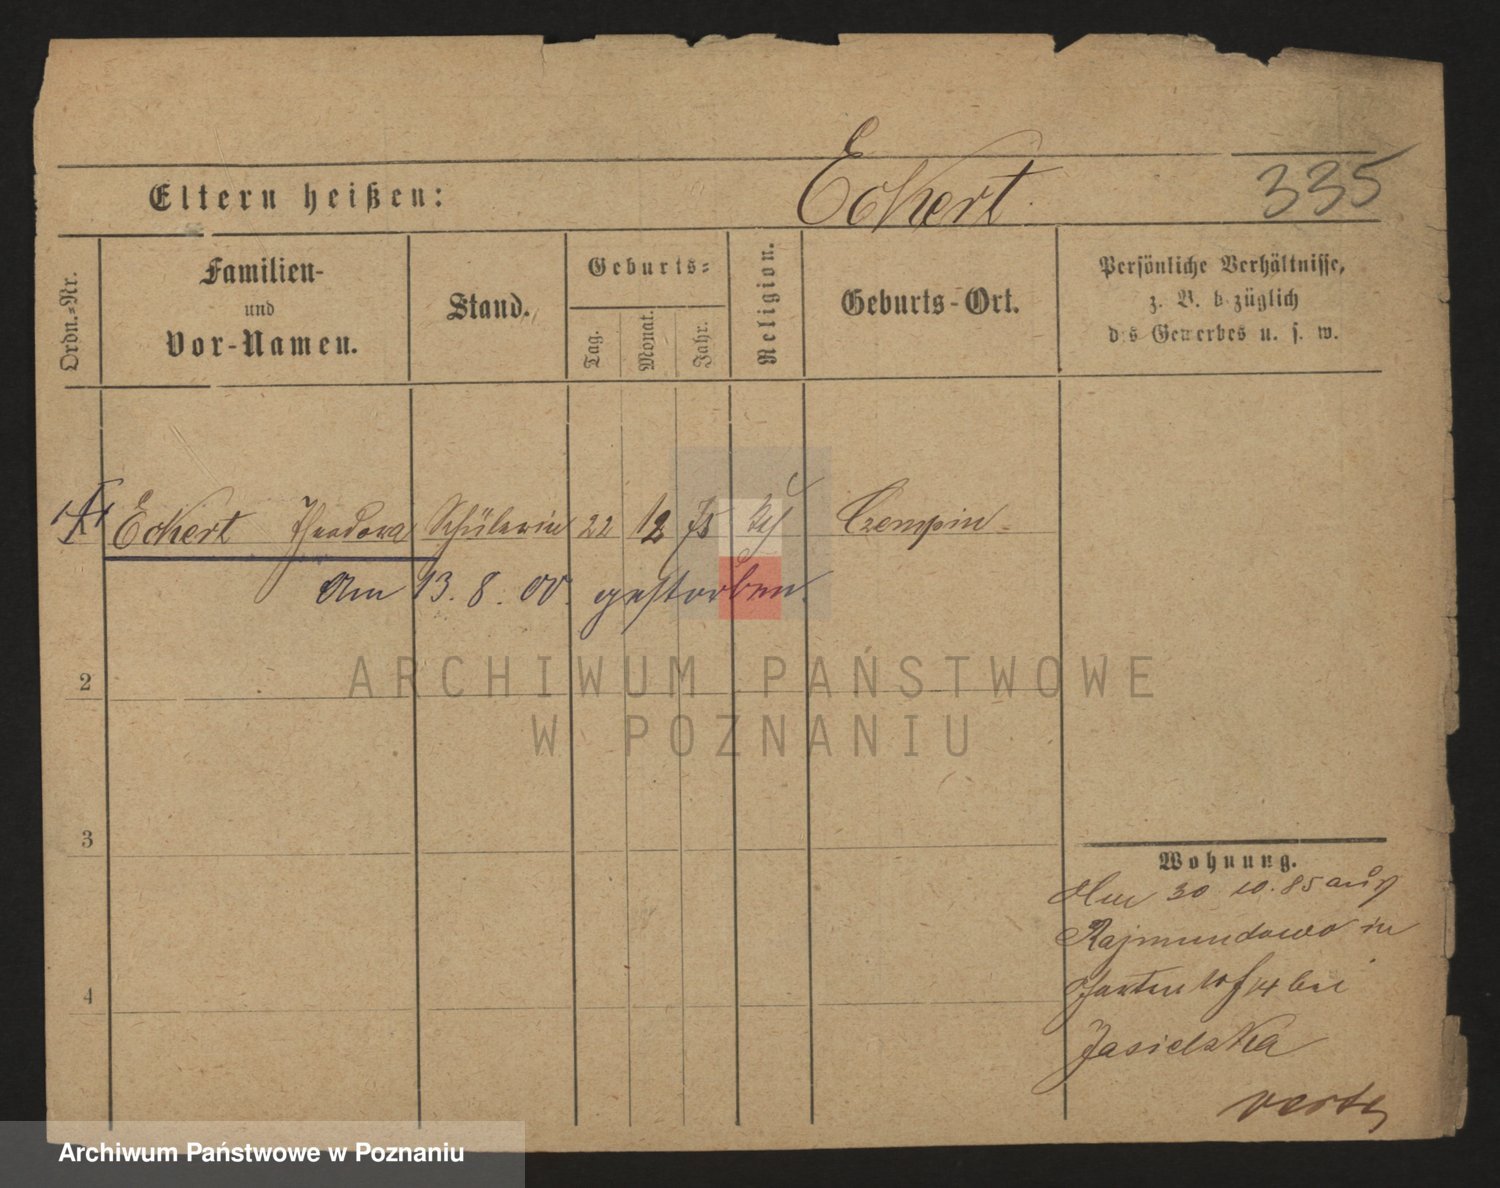 Eckert
335
Eltern heißen:
Ordn.-Nr.
Familien-
und
Vor-Namen.
Stand.
Geburts-
Tag.
Monat.
Jahr.
Religion.
Geburts-Ort.
Persönliche Verhältnisse,
z. B. bezüglich
des Gewerbes u. s. w.
1 Eckert Theodora Schülerin 22 12 75 Czempin
Am 13. 8. 00. gestorben.
2
3
4
Wohnung.
Am 30 10. 85 aus
Rajmundowo in
bei
Jasielska
verte
ARCHIWUM PAŃSTWOWE
W POZNANIU
Archiwum Państwowe w Poznaniu